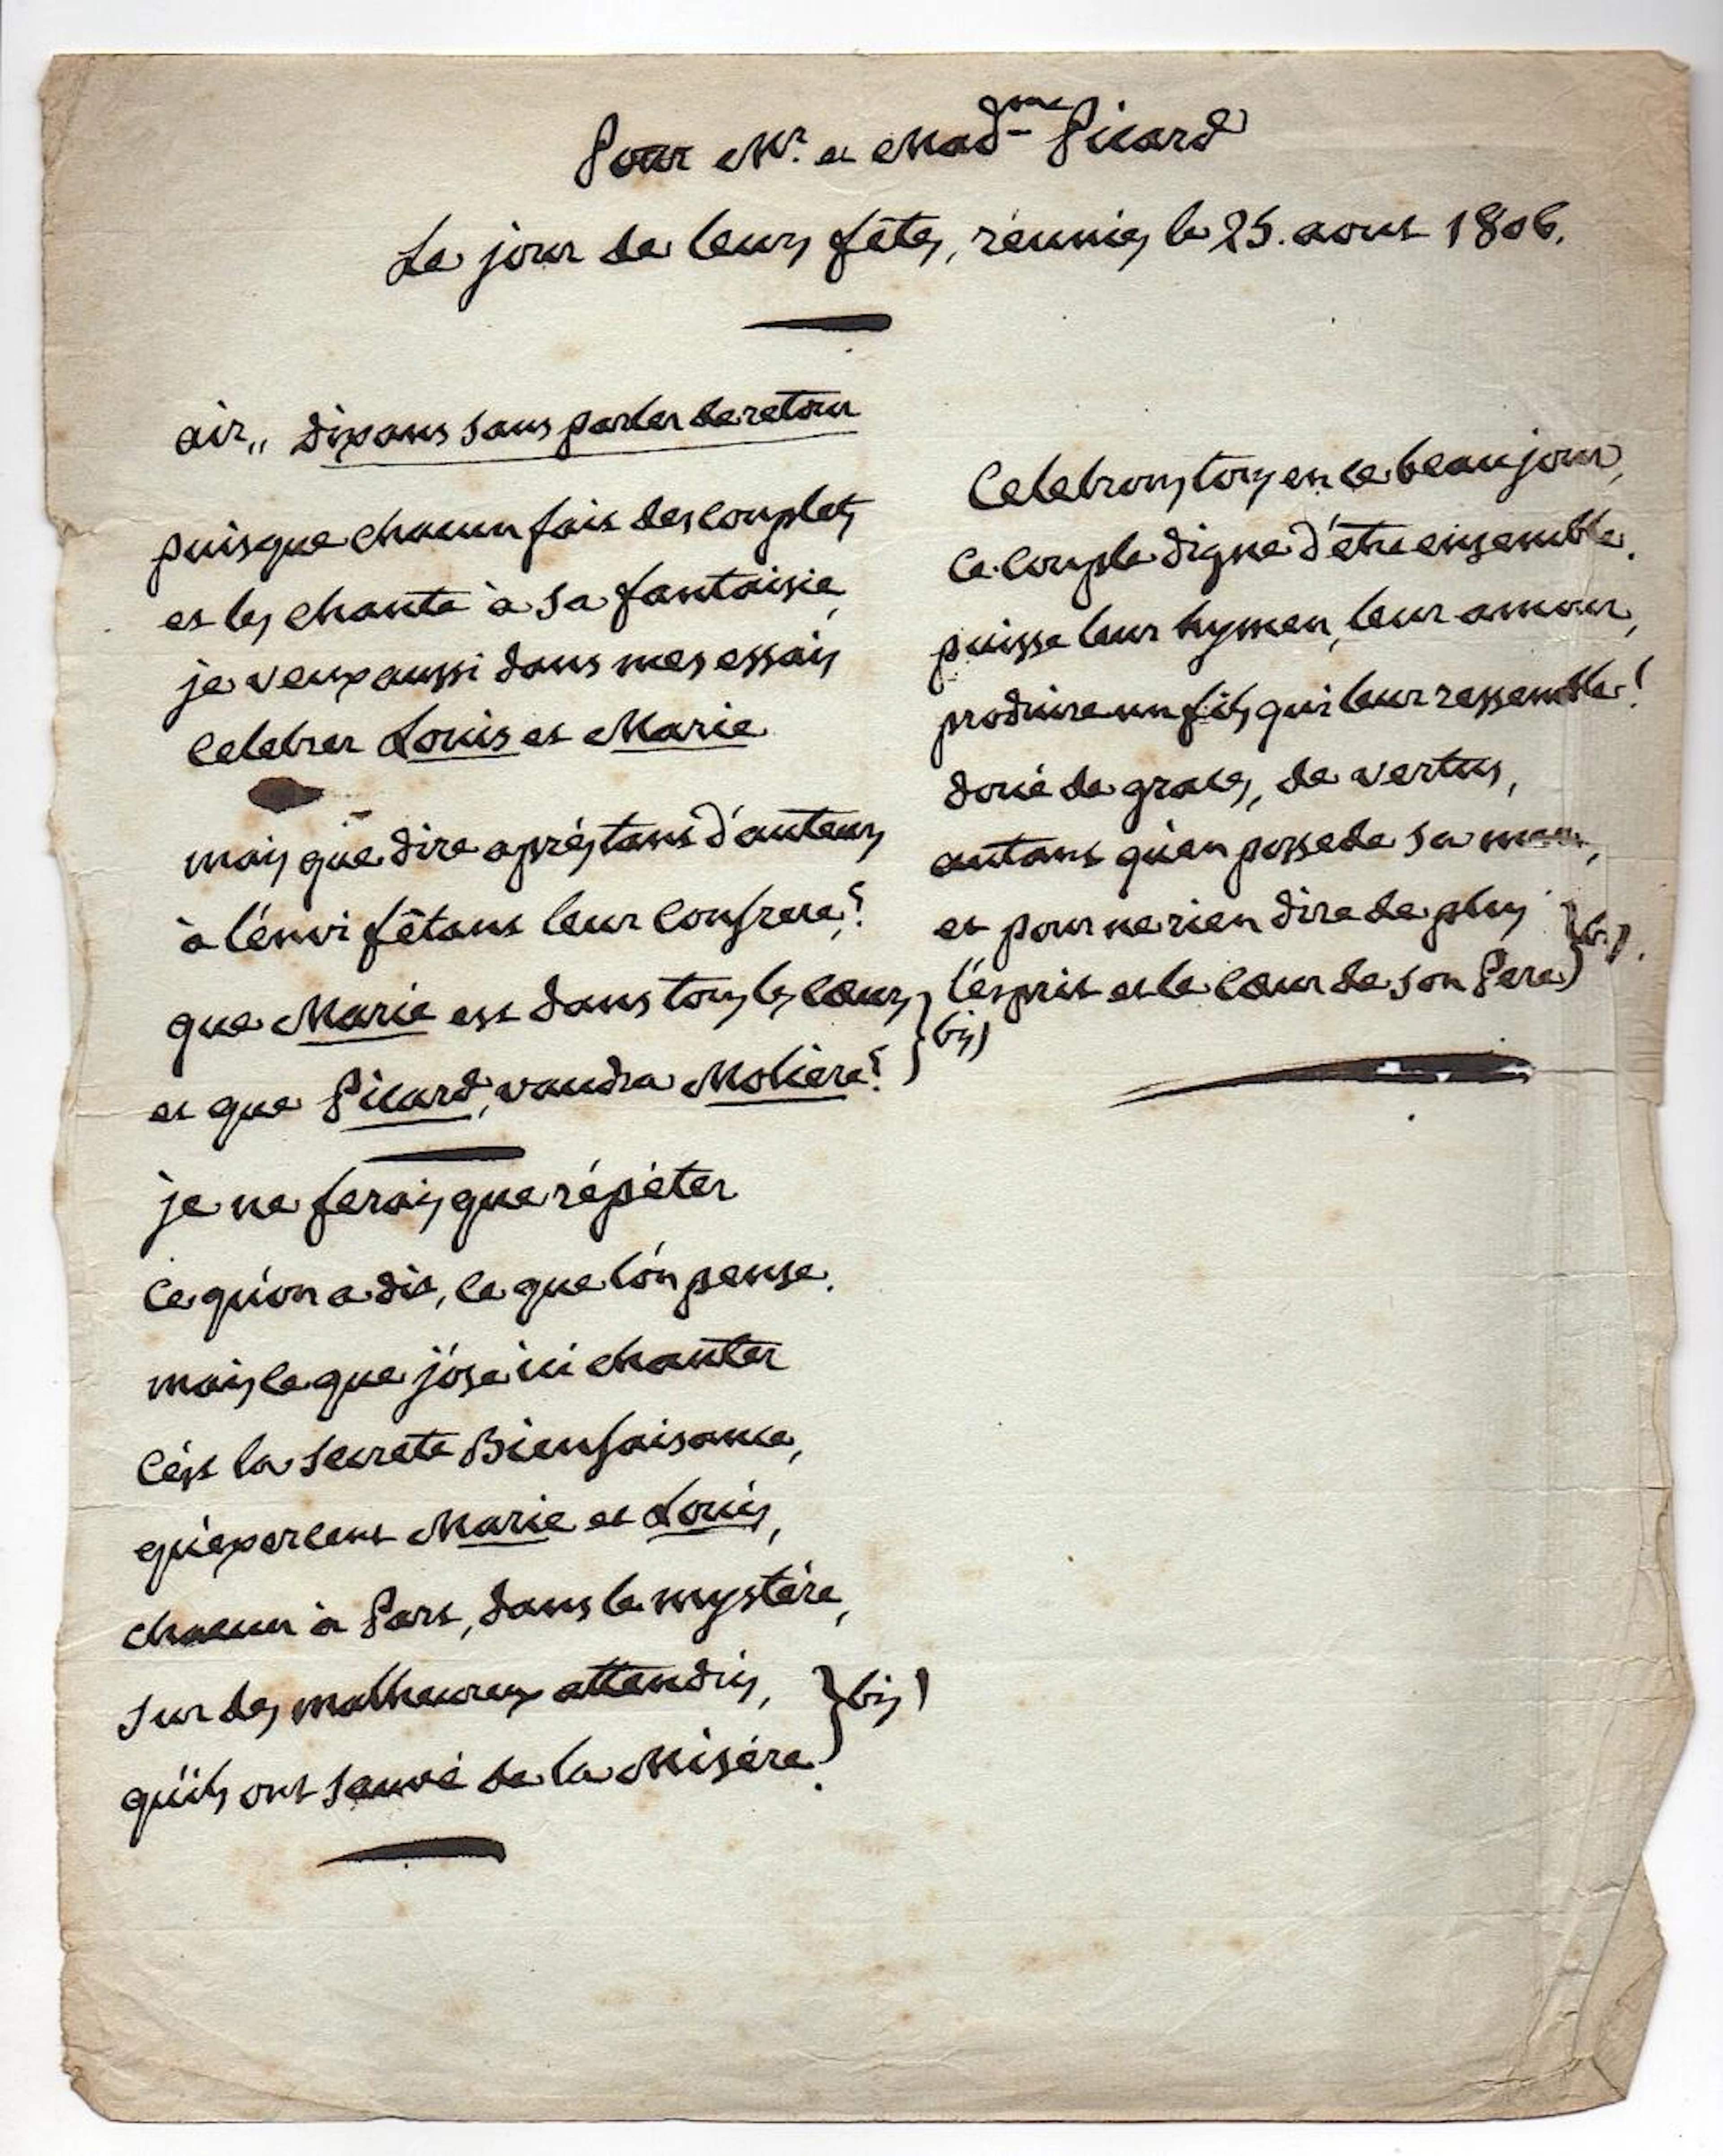 Pour Mr. et Madme Picard
Le jour de leurs fêtes, réunies le 25. aout 1806.
air,, disons sans parler de retour
puisque chacun fait des couplets
et les chante à sa fantaisie,
je veux aussi dans mes essais
Celebrer Louis et Marie.
mais que dire aprés tant d'auteurs
à l'énvi fêtant leur Confrere,?
que Marie est dans tous les Cœurs
et que Picard, vaudra Moliere? } bis)
je ne ferais que répéter
Ce qu'on a dit, Ce que l'ón pense.
mais Ce que j'óse ici chanter
C'ést la secrete Bienfaisance,
qu'éxercent Marie et Louis,
chacun à Part, dans le mystére,
sur des malheureux attendris,
qu'ils ont sauvé de la Misére. } bis)
Celebrons tous en ce beau jour,
Ce Couple digne d'être ensemble.
puisse leur hymen, leur amour,
produire un fils qui leur ressemble!
doué de graces, de vertus,
autant qu'en possede sa mere,
et pour ne rien dire de plus
l'ésprit et le Cœur de son Pere } bis.